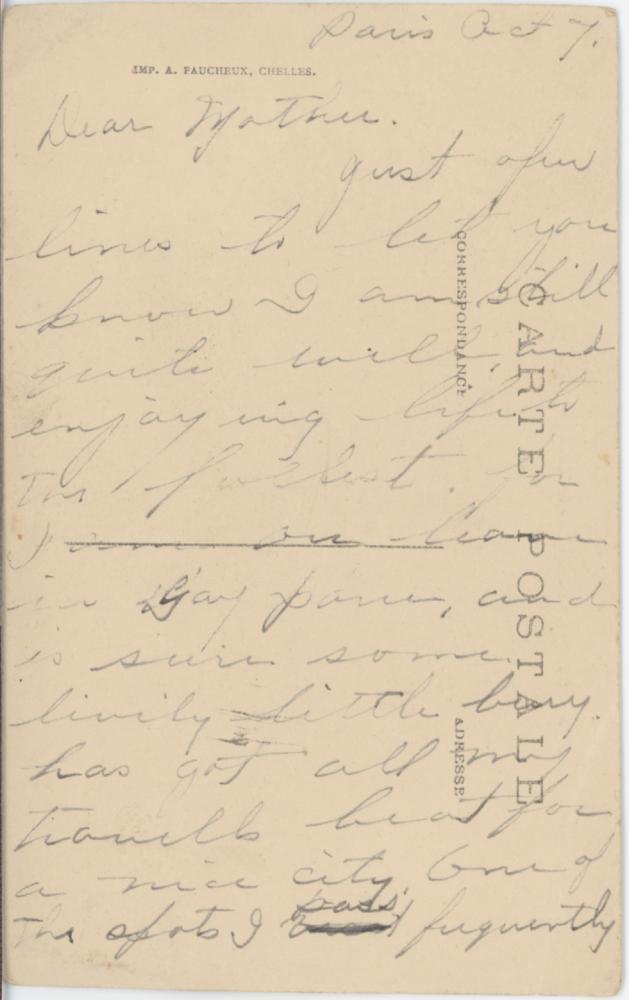 Paris Oct 7.
IMP. A. FAUCHEUX, CHELLES.
Dear Mother.
Just afew
lines to let you
know I am still
quite well, and
enjoying life to
the fullest. for
I am on leave
in Gay paree, and
is sure some
livily little burg.
has got all my
travells beat for
a nice city One of
the spots I pass fuquently
CARTE POSTALE
CORRESPONDANCE
ADRESSE